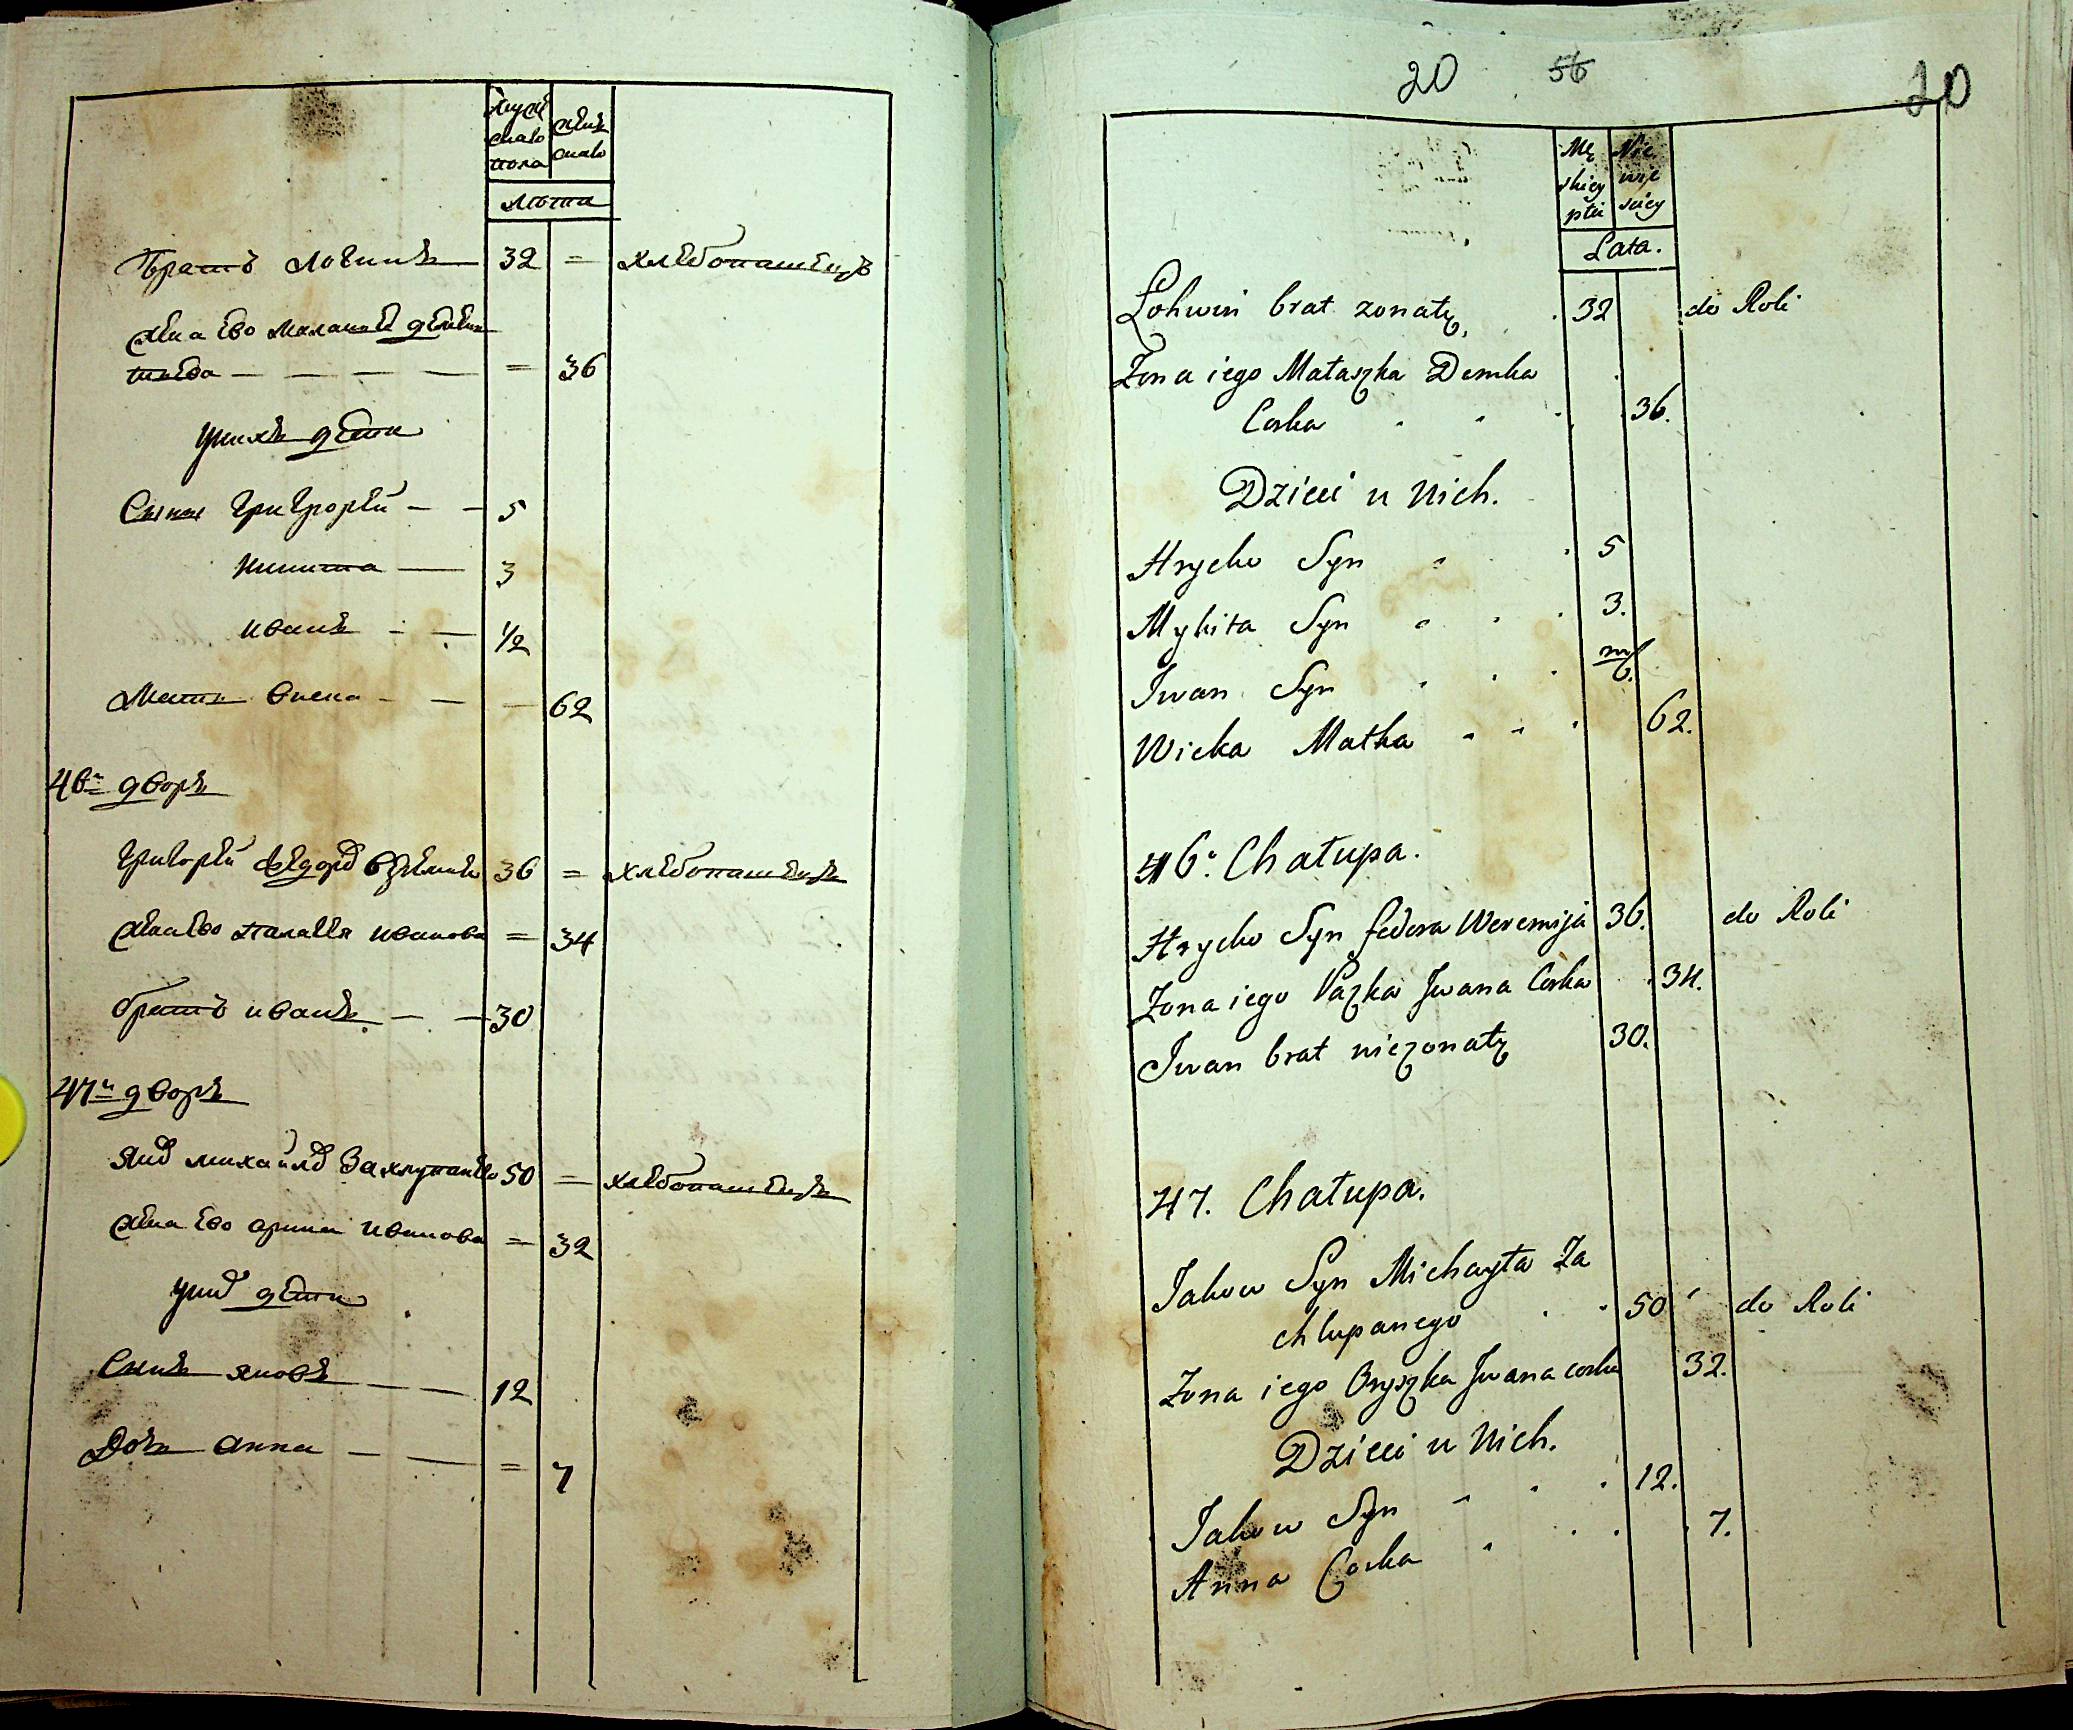 Мужс
скаго
пола
женс
скаго
лѣта
Братъ Логинъ 32 = хлѣбопашецъ
жена Ево
= 36
у нихъ дѣти
Сыны Григорей 5
Никита 3
Иванъ 1/2
Мать 62
46й дворъ
Григорей Федоров 36 = хлѣбопашецъ
жена Ево Палагея Иванова = 34
братъ Иванъ 30
47й дворъ
Яков Михайлов Захлупаной 50 = хлѣбопашецъ
жена Ево Арина Иванова = 32
у них дѣти
Сынъ Яковъ 12
Дочь Анна = 7
20 56 20
Mę
skiey
płci
Nie
wie
sciey
Lata.
Łohwin brat zonaty, 32 do Roli
Zona iego Małaszka Demka
Corka 36.
Dzieci u Nich.
Hrycko Syn 5
Mykita Syn 3.
Iwan Syn m/6.
Wicka Matka 62.
46. Chałupa.
Hrycko Syn fedora Weremija 36. do Roli
Zona iego Pazka Iwana Corka 34.
Iwan brat niezonaty 30.
47. Chałupa.
Jakow Syn Michayła Za
chlupanego 50 do Roli
Zona iego Oryszka Iwana corka 32.
Dzieci u Nich.
Jakow Syn 12.
Anna Corka 7.